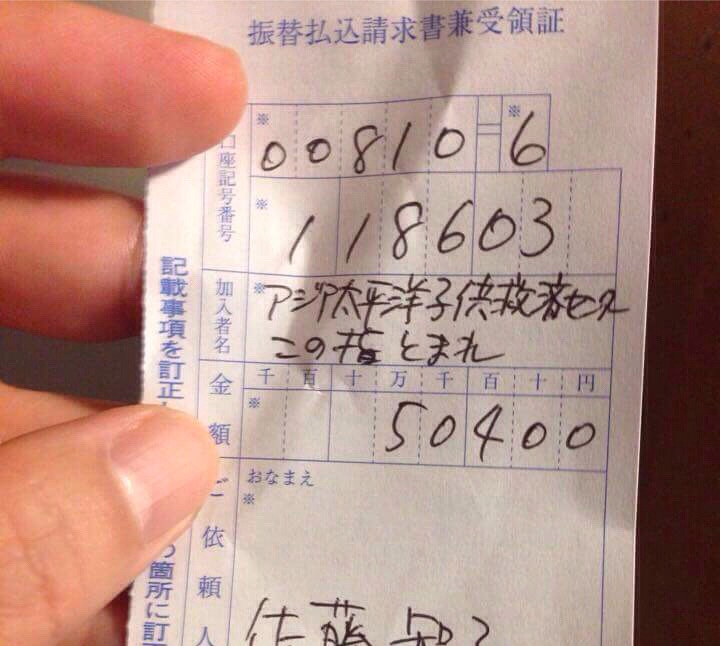 振替払込請求書兼受領証
口座記号番号
※00810=※6
※118603
加入者名
※アジア太平洋子供救済センター
この指とまれ
金額
千百十万千百十円
※50400
ご依頼人
おなまえ
※
佐藤
記載事項を訂正
の箇所に訂正